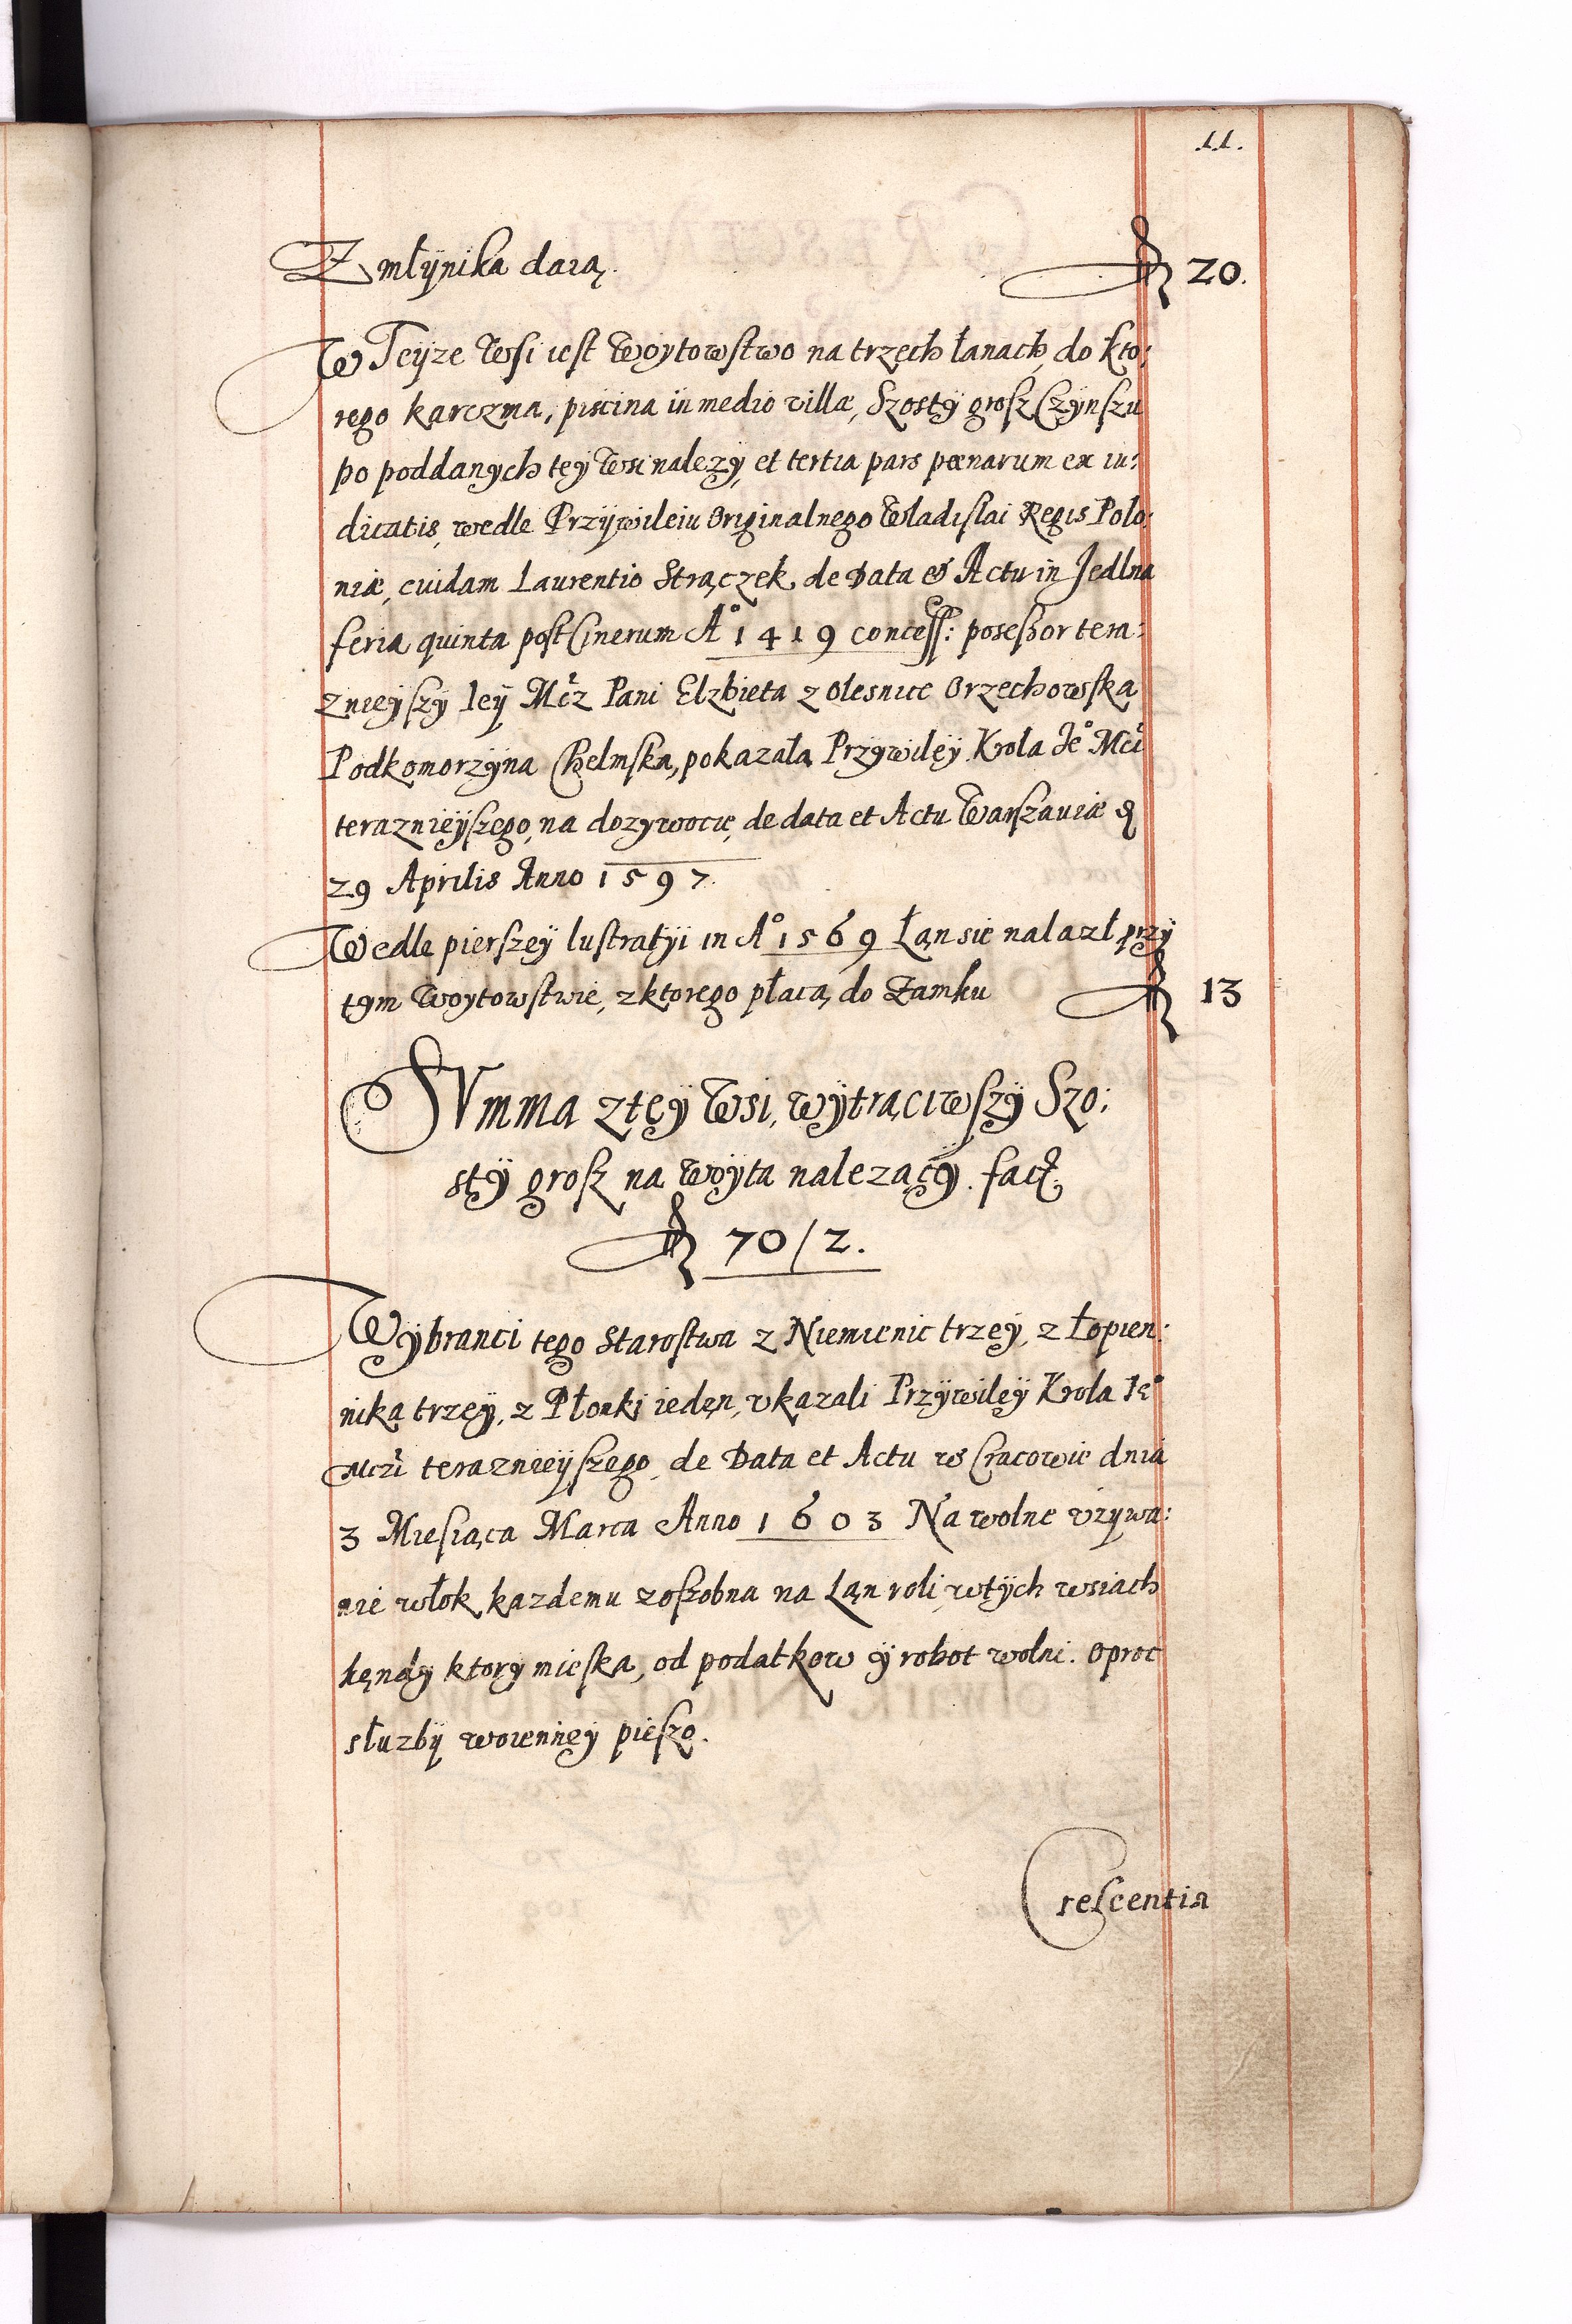 11.
Z młÿnika daią. fl 20.
W Teÿze Wsi iest Woÿtowstwo na trzech łanach, do kto:
rego karczma, piscina in medio villæ, Szostÿ grosz Czÿnszu
po poddanÿch teÿ Wsi nalezÿ, et tertia pars pœnarum ex iu:
dicatis, wedle Przÿwileiu Originalnego Wladislai Regis Polo:
niæ, cuidam Laurentio Strączek, de Data et Actu in Jedlna
feria quinta post Cinerum A° 1419 concess: posessor tera:
znieÿszÿ Ieÿ Mcz Pani Elzbieta z Olesnice Orzechowska
Podkomorzÿna Chelmska, pokazała Przÿwileÿ Krola Je° Mci
teraznieÿszego, na dozÿwocie, de data et Actu Warszauiæ d
29 Aprilis Anno 1597.
Wedle pierszeÿ lustratÿi in A° 1569 Łan sie nalazł przÿ
tÿm Woÿtowstwie, z ktorego płacą do Zamku fl 13
SVmma z teÿ Wsi, wÿtraciwszÿ Szo:
stÿ grosz na Woÿta nalezącÿ. facit
fl 70/2.
Wÿbranci tego Starostwa z Niemienic trzeÿ, z Łopien:
nika trzeÿ, z Płonki ieden, vkazali Przÿwileÿ Krola Ie°
Mczi teraznieÿszego, de Data et Actu w Cracowie dnia
3 Miesiąca Marca Anno 1603 Na wolne vzÿwa:
nie włok kazdemu zoszobna na Łan roli, w tÿch wsiach
kendÿ ktorÿ mieska, od podatkow ÿ robot wolni. Oproc
słuzbÿ woienneÿ pieszo.
Crescentia